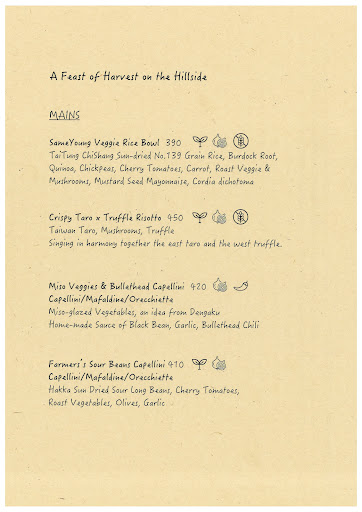 A Feast of Harvest on the Hillside
MAINS
SameYoung Veggie Rice Bowl 390
TaiTung ChiShang Sun-dried No.139 Grain Rice, Burdock Root,
Quinoa, Chickpeas, Cherry Tomatoes, Carrot, Roast Veggie &
Mushrooms, Mustard Seed Mayonnaise, Cordia dichotoma
Crispy Taro x Truffle Risotto 450
Taiwan Taro, Mushrooms, Truffle
Singing in harmony together the east taro and the west truffle.
Miso Veggies & Bullethead Capellini 420
Capellini/Mafaldine/Orecchiette
Miso-glazed Vegetables, an idea from Dengaku
Home-made Sauce of Black Bean, Garlic, Bullethead Chili
Farmers's Sour Beans Capellini 410
Capellini/Mafaldine/Orecchiette
Hakka Sun Dried Sour Long Beans, Cherry Tomatoes,
Roast Vegetables, Olives, Garlic